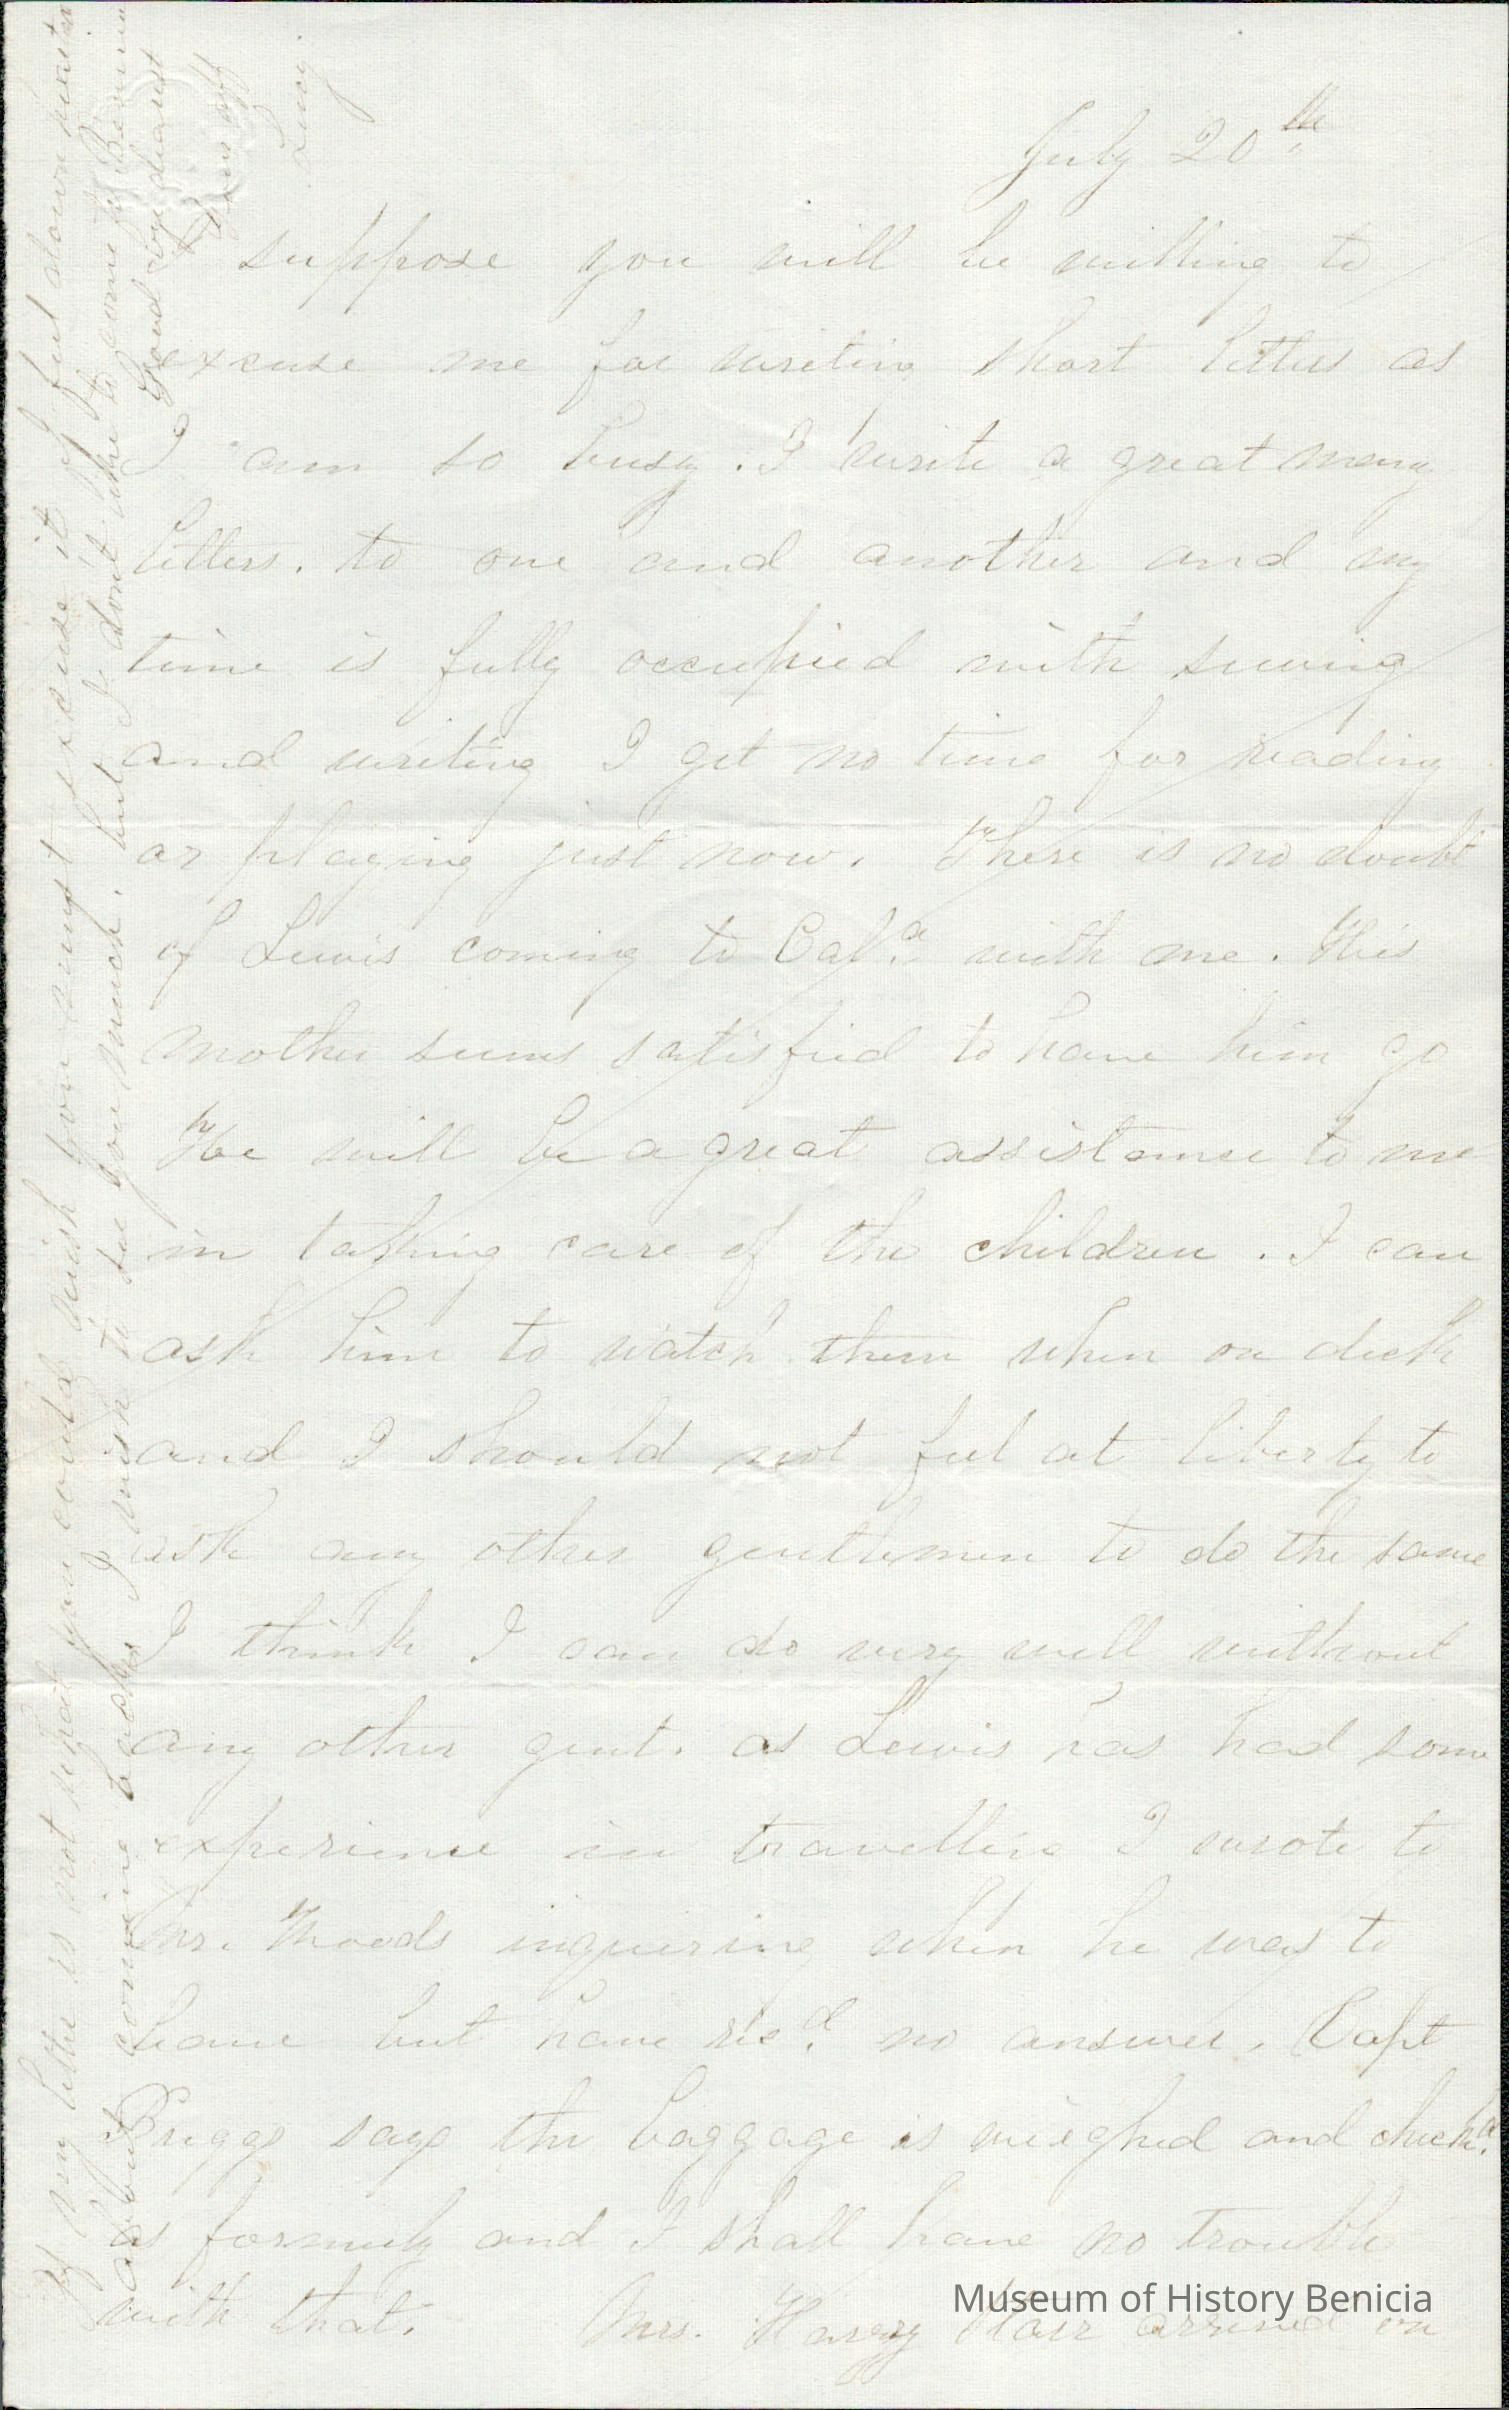 July 20th
I suppose you will be willing to
excuse me for writing short letters as
I am so busy. I write a great many
letters. to one and another and my
time is fully occupied with sewing
and writing I get no time for reading
or playing just now. There is no doubt
of Lewis coming to Cal.a with me. His
mother seems satisfied to have him go
He will be a great assistance to me
in taking care of the children. I can
ask him to watch them when on deck
and I should not feel at liberty to
ask any other gentlemen to do the same
I think I can do very well without
any other gent. as Lewis has had some
experience in travelling I wrote to
Mr. Woods inquiring when he was to
leave but have rec.d no answer. Capt
Briggs says the baggage is weighed and check.d
as formerly and I shall have no trouble
with that. Mrs. Harvy Starr arrived on
If my letter is not what you could wish you must excuse it I feel down hearted
about coming back, I wish to see you much, but I dont like to come to Benicia
Good bye dearest
Yours aff
Lucy
Museum of History Benicia